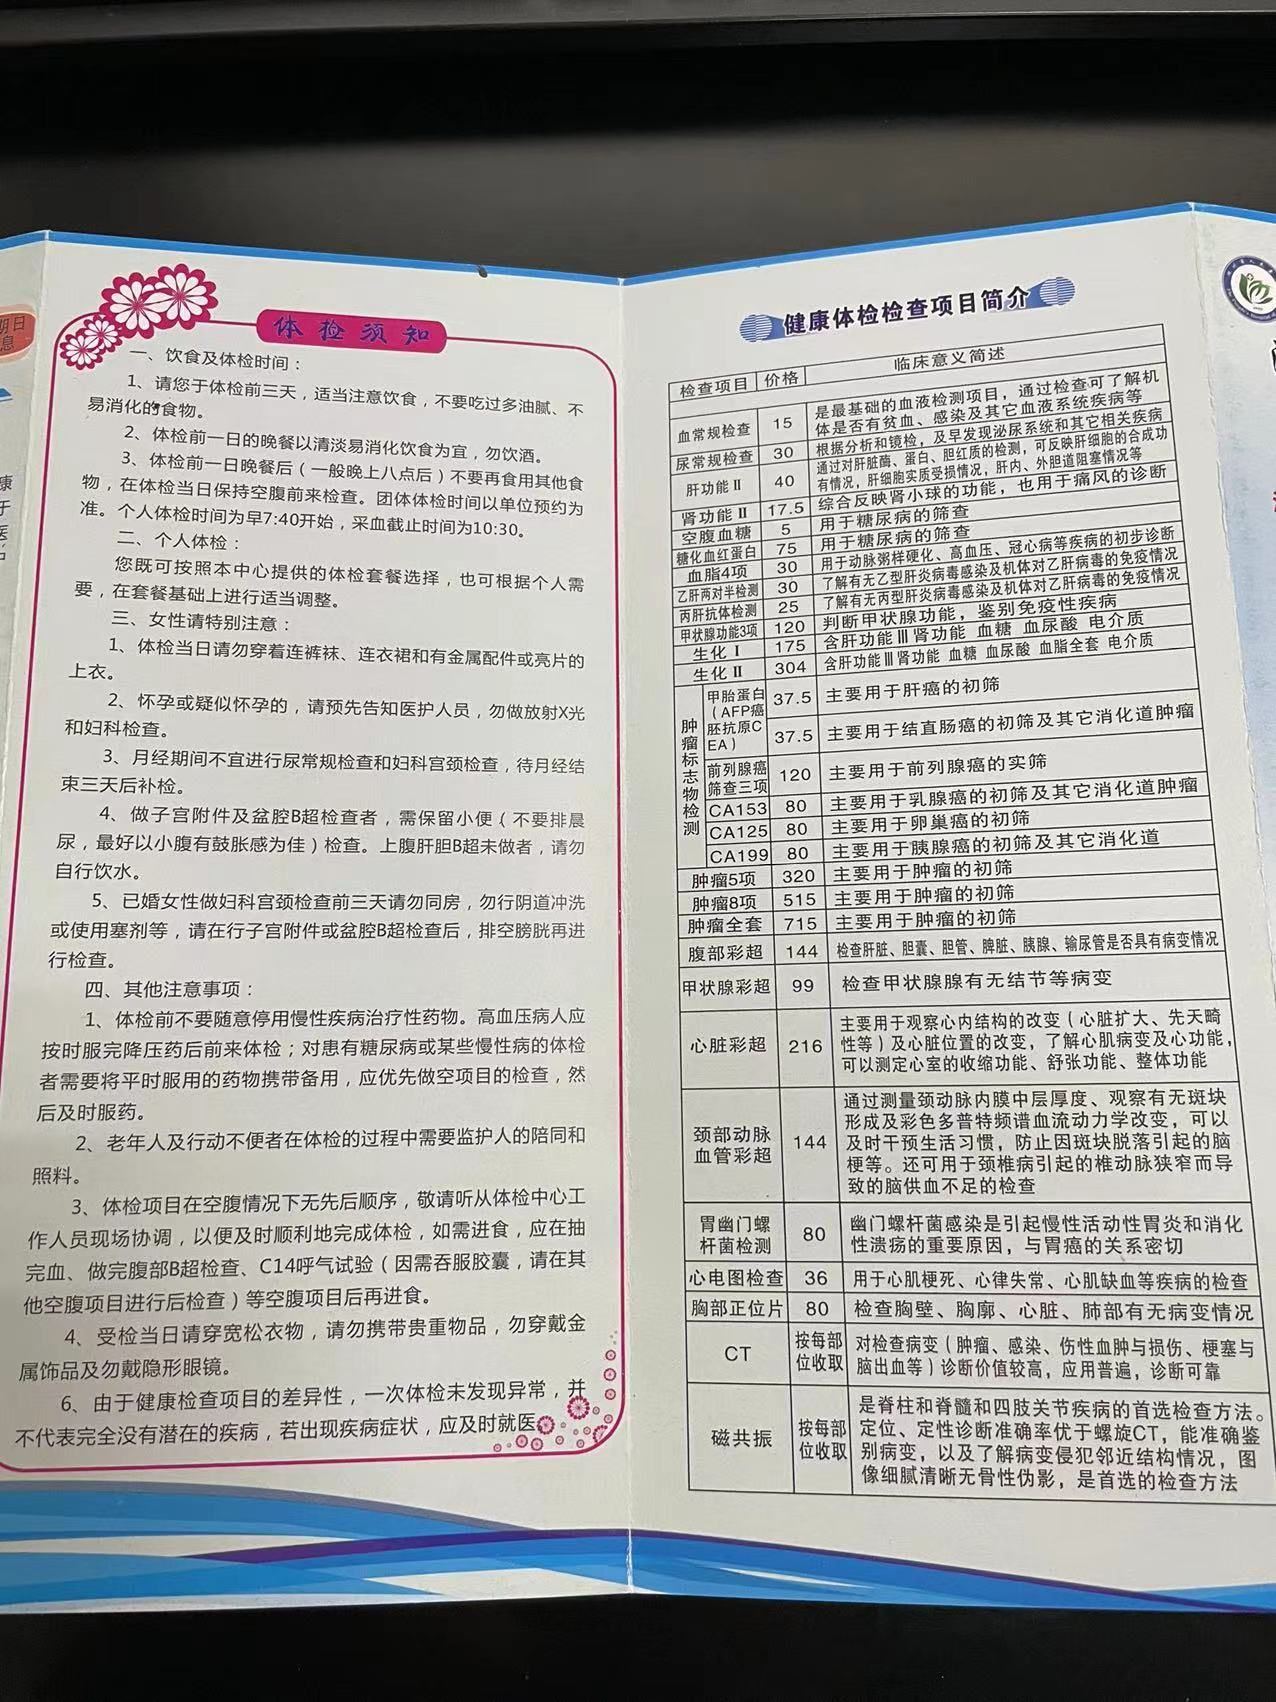 期日
息
康
于
医
体检须知
一、饮食及体检时间：
1、请您于体检前三天，适当注意饮食，不要吃过多油腻、不
易消化的食物。
2、体检前一日的晚餐以清淡易消化饮食为宜，勿饮酒。
3、体检前一日晚餐后（一般晚上八点后）不要再食用其他食
物，在体检当日保持空腹前来检查。团体体检时间以单位预约为
准。个人体检时间为早7:40开始，采血截止时间为10:30。
二、个人体检：
您既可按照本中心提供的体检套餐选择，也可根据个人需
要，在套餐基础上进行适当调整。
三、女性请特别注意：
1、体检当日请勿穿着连裤袜、连衣裙和有金属配件或亮片的
上衣。
2、怀孕或疑似怀孕的，请预先告知医护人员，勿做放射X光
和妇科检查。
3、月经期间不宜进行尿常规检查和妇科宫颈检查，待月经结
束三天后补检。
4、做子宫附件及盆腔B超检查者，需保留小便（不要排晨
尿，最好以小腹有鼓胀感为佳）检查。上腹肝胆B超未做者，请勿
自行饮水。
5、已婚女性做妇科宫颈检查前三天请勿同房，勿行阴道冲洗
或使用塞剂等，请在行子宫附件或盆腔B超检查后，排空膀胱再进
行检查。
四、其他注意事项：
1、体检前不要随意停用慢性疾病治疗性药物。高血压病人应
按时服完降压药后前来体检；对患有糖尿病或某些慢性病的体检
者需要将平时服用的药物携带备用，应优先做空项目的检查，然
后及时服药。
2、老年人及行动不便者在体检的过程中需要监护人的陪同和
照料。
3、体检项目在空腹情况下无先后顺序，敬请听从体检中心工
作人员现场协调，以便及时顺利地完成体检，如需进食，应在抽
完血、做完腹部B超检查、C14呼气试验（因需吞服胶囊，请在其
他空腹项目进行后检查）等空腹项目后再进食。
4、受检当日请穿宽松衣物，请勿携带贵重物品，勿穿戴金
属饰品及勿戴隐形眼镜。
6、由于健康检查项目的差异性，一次体检未发现异常，并
不代表完全没有潜在的疾病，若出现疾病症状，应及时就医。
健康体检检查项目简介
检查项目 价格 临床意义简述
血常规检查 15 是最基础的血液检测项目，通过检查可了解机
体是否有贫血、感染及其它血液系统疾病等
尿常规检查 30 根据分析和镜检，及早发现泌尿系统和其它相关疾病
肝功能Ⅱ 40 通过对肝脏酶、蛋白、胆红质的检测，可反映肝细胞的合成功
有情况，肝细胞实质受损情况，肝内、外胆道阻塞情况等
肾功能Ⅱ 17.5 综合反映肾小球的功能，也用于痛风的诊断
空腹血糖 5 用于糖尿病的筛查
糖化血红蛋白 75 用于糖尿病的筛查
血脂4项 30 用于动脉粥样硬化、高血压、冠心病等疾病的初步诊断
乙肝两对半检测 30 了解有无乙型肝炎病毒感染及机体对乙肝病毒的免疫情况
丙肝抗体检测 25 了解有无丙型肝炎病毒感染及机体对乙肝病毒的免疫情况
甲状腺功能3项 120 判断甲状腺功能，鉴别免疫性疾病
生化Ⅰ 175 含肝功能Ⅲ肾功能 血糖 血尿酸 电介质
生化Ⅱ 304 含肝功能Ⅲ肾功能 血糖 血尿酸 血脂全套 电介质
肿瘤标志物检测
甲胎蛋白 37.5 主要用于肝癌的初筛
（AFP癌
胚抗原C 37.5 主要用于结直肠癌的初筛及其它消化道肿瘤
EA）
前列腺癌
筛查三项 120 主要用于前列腺癌的实筛
CA153 80 主要用于乳腺癌的初筛及其它消化道肿瘤
CA125 80 主要用于卵巢癌的初筛
CA199 80 主要用于胰腺癌的初筛及其它消化道
肿瘤5项 320 主要用于肿瘤的初筛
肿瘤8项 515 主要用于肿瘤的初筛
肿瘤全套 715 主要用于肿瘤的初筛
腹部彩超 144 检查肝脏、胆囊、胆管、脾脏、胰腺、输尿管是否具有病变情况
甲状腺彩超 99 检查甲状腺腺有无结节等病变
心脏彩超 216 主要用于观察心内结构的改变（心脏扩大、先天畸
性等）及心脏位置的改变，了解心肌病变及心功能，
可以测定心室的收缩功能、舒张功能、整体功能
颈部动脉
血管彩超 144 通过测量颈动脉内膜中层厚度、观察有无斑块
形成及彩色多普特频谱血流动力学改变，可以
及时干预生活习惯，防止因斑块脱落引起的脑
梗等。还可用于颈椎病引起的椎动脉狭窄而导
致的脑供血不足的检查
胃幽门螺
杆菌检测 80 幽门螺杆菌感染是引起慢性活动性胃炎和消化
性溃疡的重要原因，与胃癌的关系密切
心电图检查 36 用于心肌梗死、心律失常、心肌缺血等疾病的检查
胸部正位片 80 检查胸壁、胸廓、心脏、肺部有无病变情况
CT 按每部
位收取 对检查病变（肿瘤、感染、伤性血肿与损伤、梗塞与
脑出血等）诊断价值较高，应用普遍，诊断可靠
磁共振 按每部
位收取 是脊柱和脊髓和四肢关节疾病的首选检查方法。
定位、定性诊断准确率优于螺旋CT，能准确鉴
别病变，以及了解病变侵犯邻近结构情况，图
像细腻清晰无骨性伪影，是首选的检查方法